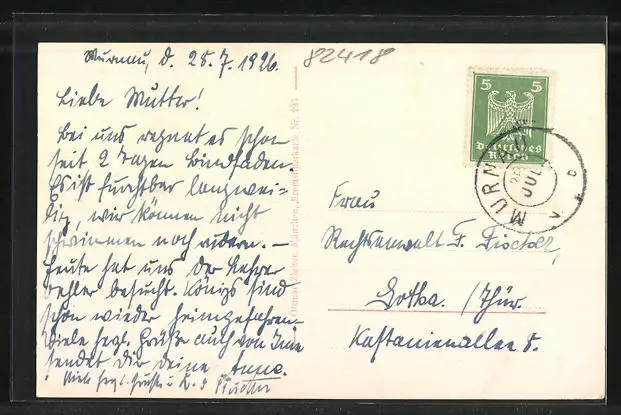 Murnau, d. 25.7.1926.
82418
Liebe Mutter!
Bei uns regnet es schon
seit 2 Tagen Bindfaden.
Es ist furchtbar langwei-
lig, wir können nicht
schwimmen noch rudern. –
Heute hat uns der Lehrer
besucht. Königs sind
schon wieder heimgefahren.
Viele herzl. Grüße auch von
sendet Dir deine Anne.
Viele herzl. Grüße u. K. s
5 5
Deutsches
Reich
MURNAU
JUL
Frau
Rechtsanwalt F. Fischer,
Gotha. /Thür.
Kastanienallee 8.